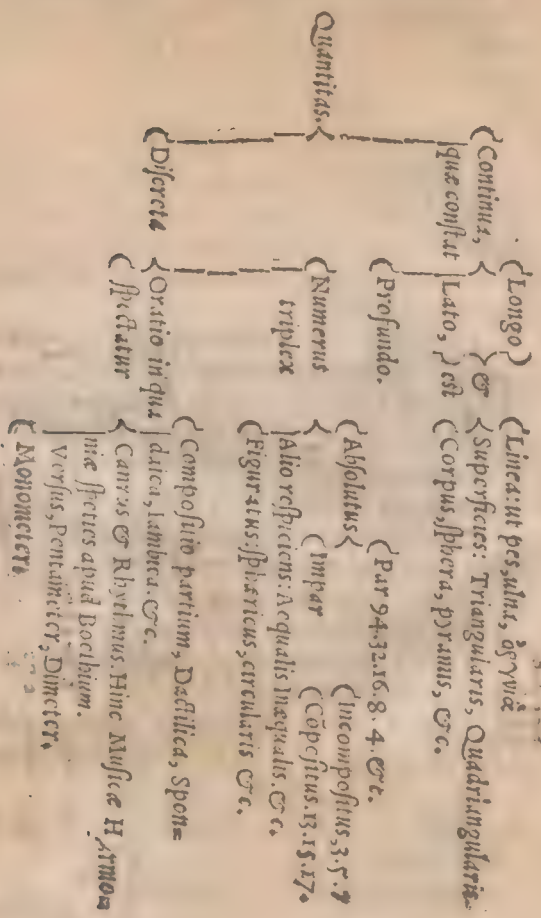 Quantitas.
Continua,
quæ constat
Longo
Lato,
Profundo.
&
est
Linea: ut pes, ulna, ὀργυιά
Superficies: Triangularis, Quadriangularis
Corpus, sphera, pyramis, &c.
Discreta
Numerus
triplex
Absolutus
Par 94.32.16.8.4.&c.
Impar
Incompositus, 3.5.7
Cōpositus. 13.15.17.
Alio respiciens: Aequalis Inæqualis. &c.
Figuratus: sphæricus, circularis &c.
Oratio in qua
spectatur
Compositio partium, Dactilica, Spon=
daica, Iambica. &c.
Cantus & Rhythmus. Hinc Musicæ Harmo=
niæ species apud Boethium.
Versus, Pentameter, Dimeter,
Monometer.